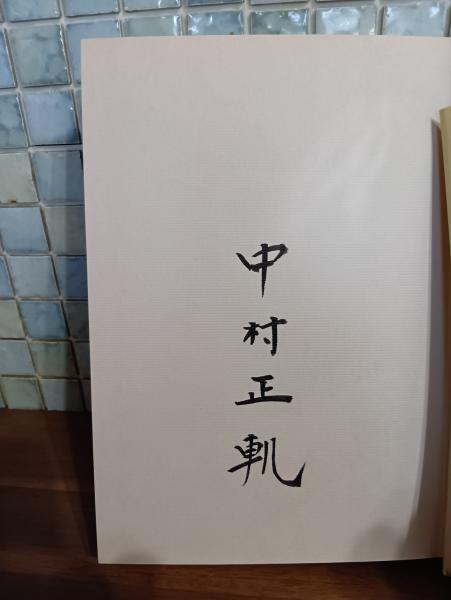 中村正軌